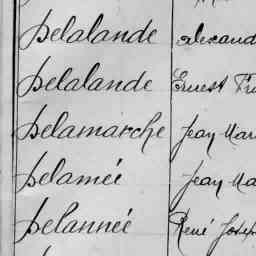 Delalande Alexand
Delalande Ernest Fra
Delamarche Jean Mar
Delamée Jean Ma
Delannée René Josep